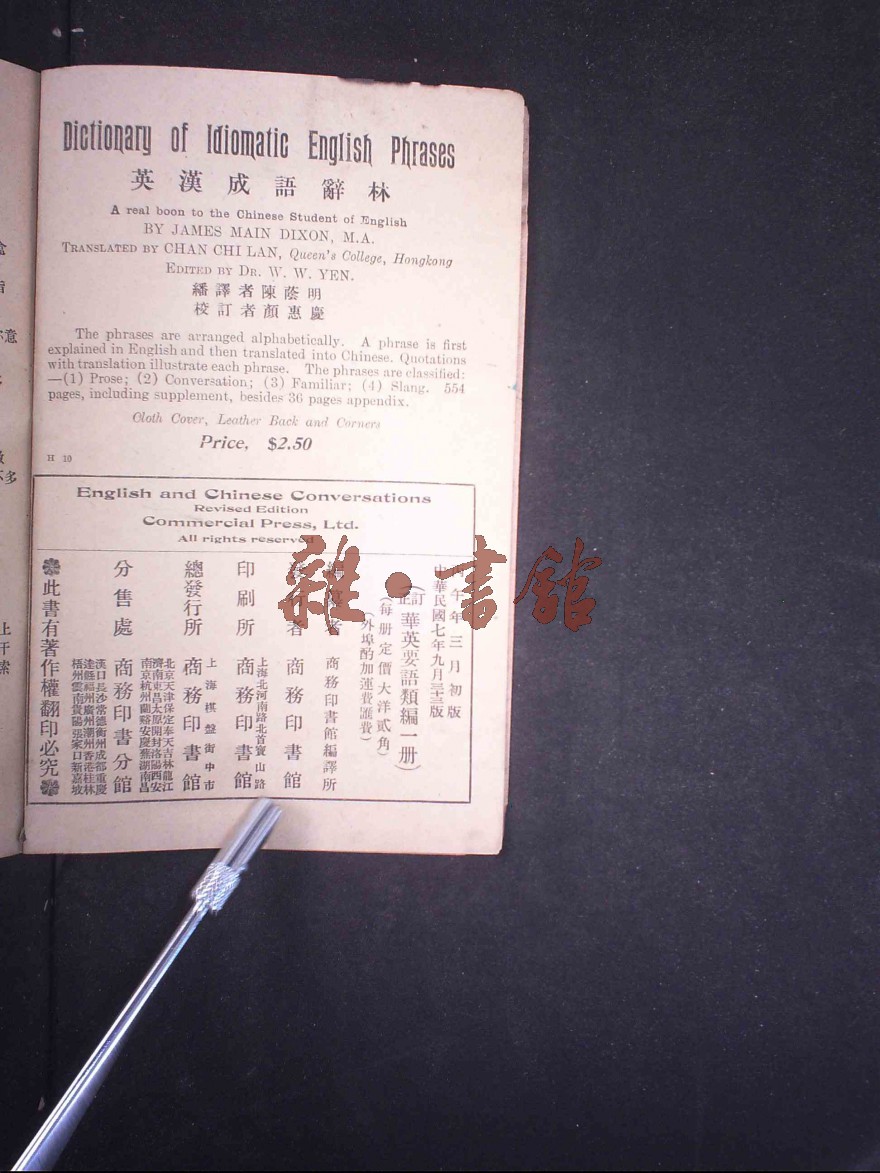 Dictionary of Idiomatic English Phrases
英漢成語辭林
A real boon to the Chinese Student of English
BY JAMES MAIN DIXON, M.A.
TRANSLATED BY CHAN CHI LAN, Queen's College, Hongkong
EDITED BY DR. W. W. YEN.
繙譯者陳蔭明
校訂者顏惠慶
The phrases are arranged alphabetically. A phrase is first
explained in English and then translated into Chinese. Quotations
with translation illustrate each phrase. The phrases are classified:
—(1) Prose; (2) Conversation; (3) Familiar; (4) Slang. 554
pages, including supplement, besides 36 pages appendix.
Cloth Cover, Leather Back and Corners
Price, $2.50
H 10
English and Chinese Conversations
Revised Edition
Commercial Press, Ltd.
All rights reserved
午年三月初版
中華民國七年九月三十三版
(訂正華英要語類編一册)
(每册定價大洋貳角)
(外埠酌加運費匯費)
者 商務印書館編譯所
者 商務印書館
印刷所 上海北河南路北首寶山路 商務印書館
總發行所 上海棋盤街中市 商務印書館
分售處 商務印書分館
北京天津保定奉天吉林龍江
濟南東昌太原開封洛陽西安
南京杭州蘭谿安慶蕪湖南昌
漢口長沙常德衡州成都重慶
達縣福州廣州潮州香港桂林
梧州雲南貴陽張家口新嘉坡
此書有著作權翻印必究
雜·書館